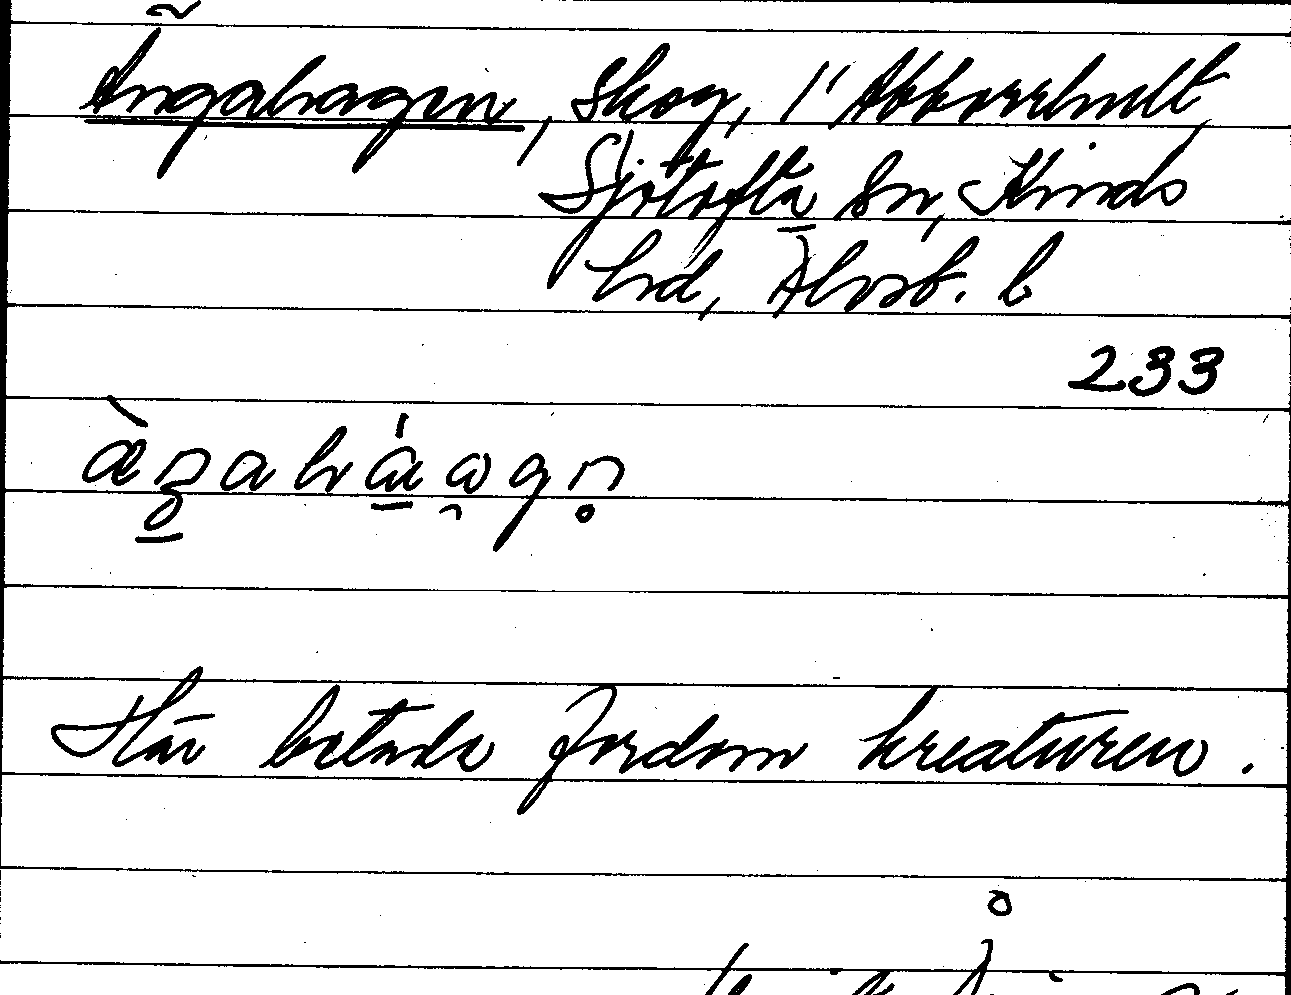 Ängahagen, Skog, 1' Abborrhult
Sjötofta sn, Kinds
hd, Älvsb. l
233
Här betade fordom kreaturen.